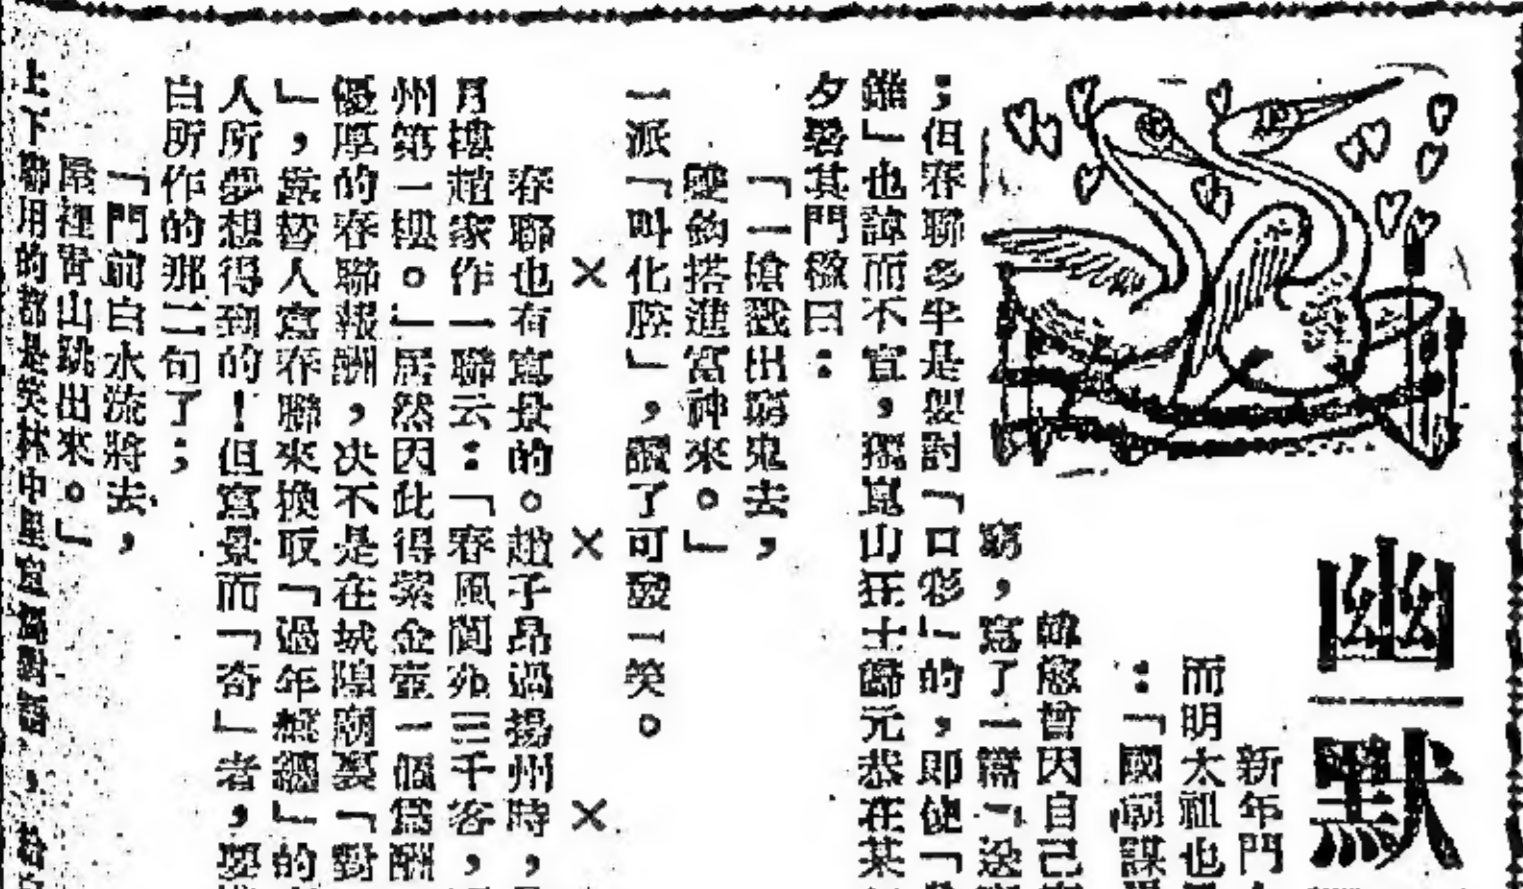 幽默
新年門
而明太祖也
：「國朝謀
韓愈曾因自己
窮，寫了一篇「送
；但春聯多半是要討「口彩」的，即使「
雖」也諱而不宣，獨崑山狂士歸元恭在某
夕署其門聯曰：
「一槍戳出窮鬼去，
雙鈎搭進富神來。」
一派「叫化腔」，讀了可發一笑。
×　×　×
春聯也有寫景的。趙子昂過揚州時，
月樓趙家作一聯云：「春風閬苑三千客，
州第一樓。」居然因此得紫金壺一個爲酬
優厚的春聯報酬，决不是在城隍廟裏「對
」，當替人寫春聯來換取「過年盤纏」的
人所夢想得到的！但寫景而「奇」者，要
白所作的那二句了；
「門前白水流將去，
屋裡青山跳出來。」
上下聯用的都是笑林中